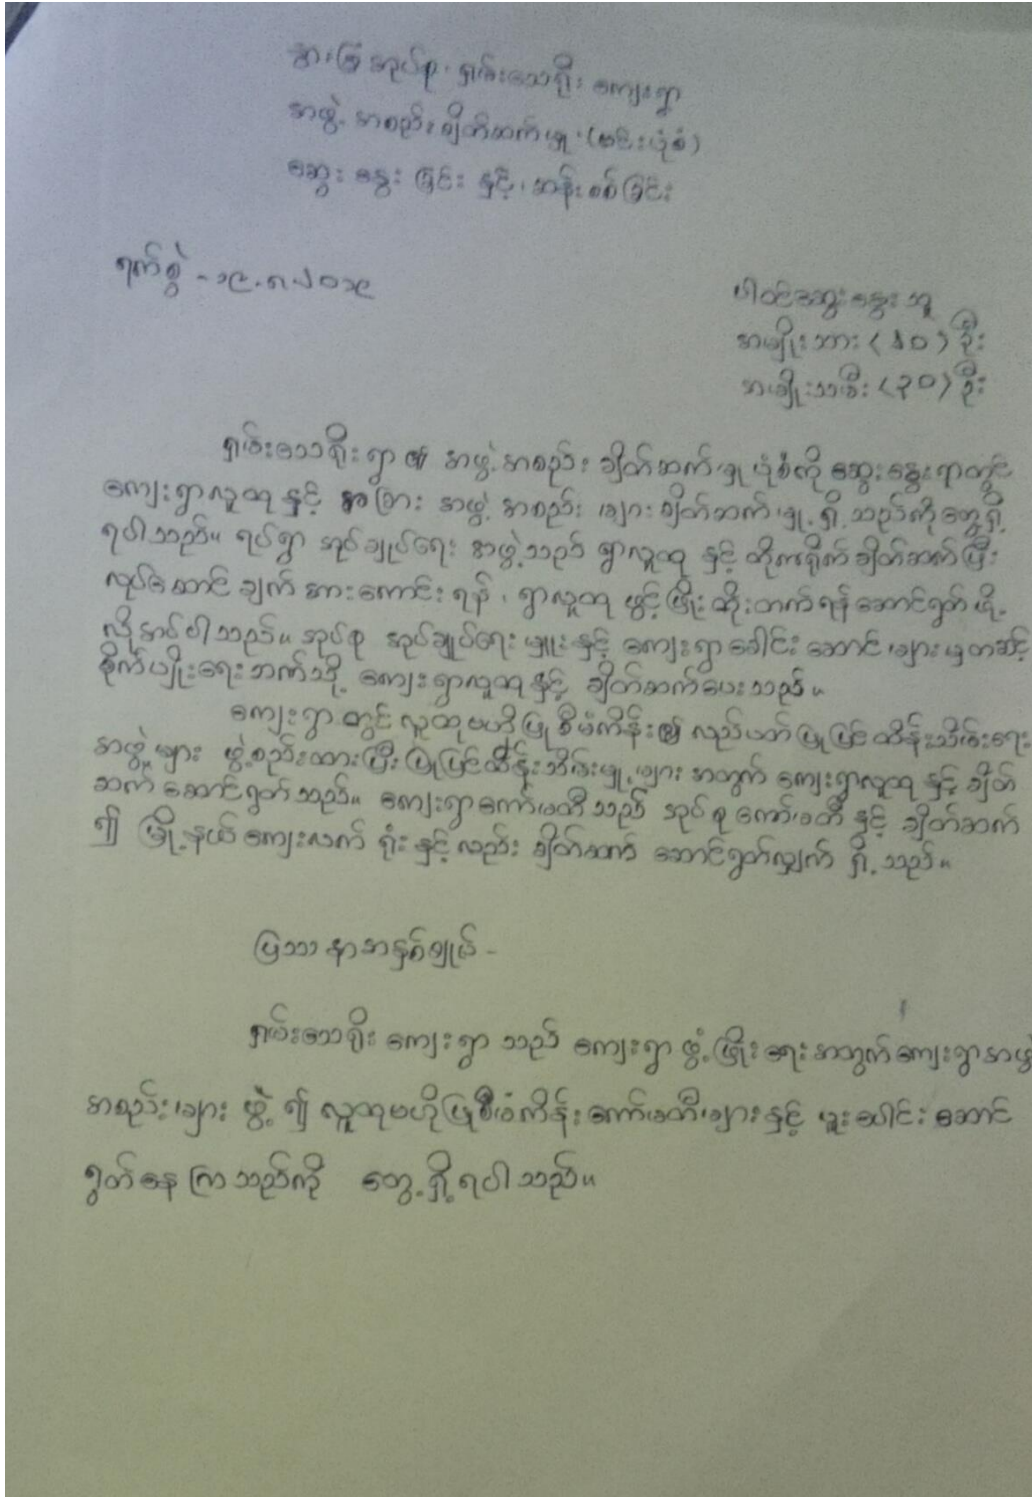 နွားခြံအုပ်စု၊ ရှမ်းသေရိုး ကျေးရွာ
အဖွဲ့အစည်းချိတ်ဆက်မှု (ဗင်းပုံစံ)
ဆွေးနွေးခြင်း နှင့်၊ ဆန်းစစ်ခြင်း
ရက်စွဲ - ၁၉.၈.၂၀၁၉
ပါဝင်ဆွေးနွေးသူ
အမျိုးသား (၄၀) ဦး
အမျိုးသမီး (၃၀) ဦး
ရှမ်းသေရိုးရွာ၏ အဖွဲ့အစည်း ချိတ်ဆက်မှုပုံစံကို ဆွေးနွေးရာတွင်
ကျေးရွာလူထု နှင့် အခြား အဖွဲ့အစည်း များချိတ်ဆက်မှု ရှိသည်ကိုတွေ့ရှိ
ရပါသည်။ ရပ်ရွာ အုပ်ချုပ်ရေး အဖွဲ့သည် ရွာလူထု နှင့် တိုက်ရိုက်ချိတ်ဆက်ပြီး
လုပ်ဆောင်ချက် အားကောင်းရန်၊ ရွာလူထု ဖွင့်ဖြိုးတိုးတက်ရန်ဆောင်ရွက်ဖို့
လိုအပ်ပါသည်။ အုပ်စု အုပ်ချုပ်ရေးမှူးနှင့် ကျေးရွာခေါင်းဆောင်များမှတဆင့်
စိုက်ပျိုးရေးဘဏ်သို့ ကျေးရွာလူထုနှင့် ချိတ်ဆက်ပေးသည်။
ကျေးရွာတွင် လူထုဗဟိုပြုစီမံကိန်း၏ လုပ်ငန်း ပြုပြင်ထိန်းသိမ်းရေး
အဖွဲ့များ ဖွဲ့စည်းထားပြီး ပြုပြင်ထိန်းသိမ်းမှုများ အတွက် ကျေးရွာလူထု နှင့် ချိတ်
ဆက်ဆောင်ရွက်သည်။ ကျေးရွာကော်မတီသည် အုပ်စုကော်မတီ နှင့် ချိတ်ဆက်
၍ မြို့နယ်ကျေးလက် ရုံးနှင့်လည်း ချိတ်ဆက် ဆောင်ရွက်လျှက် ရှိသည်။
ပြဿနာအနှစ်ချုပ် -
ရှမ်းသေရိုးကျေးရွာ သည် ကျေးရွာ ဖွံ့ဖြိုးရေးအတွက်ကျေးရွာအဖွဲ့
အစည်းများ ဖွဲ့၍ လူထုဗဟိုပြုစီမံကိန်းကော်မတီများနှင့် ပူးပေါင်းဆောင်
ရွက်နေကြသည်ကို တွေ့ရှိရပါသည်။